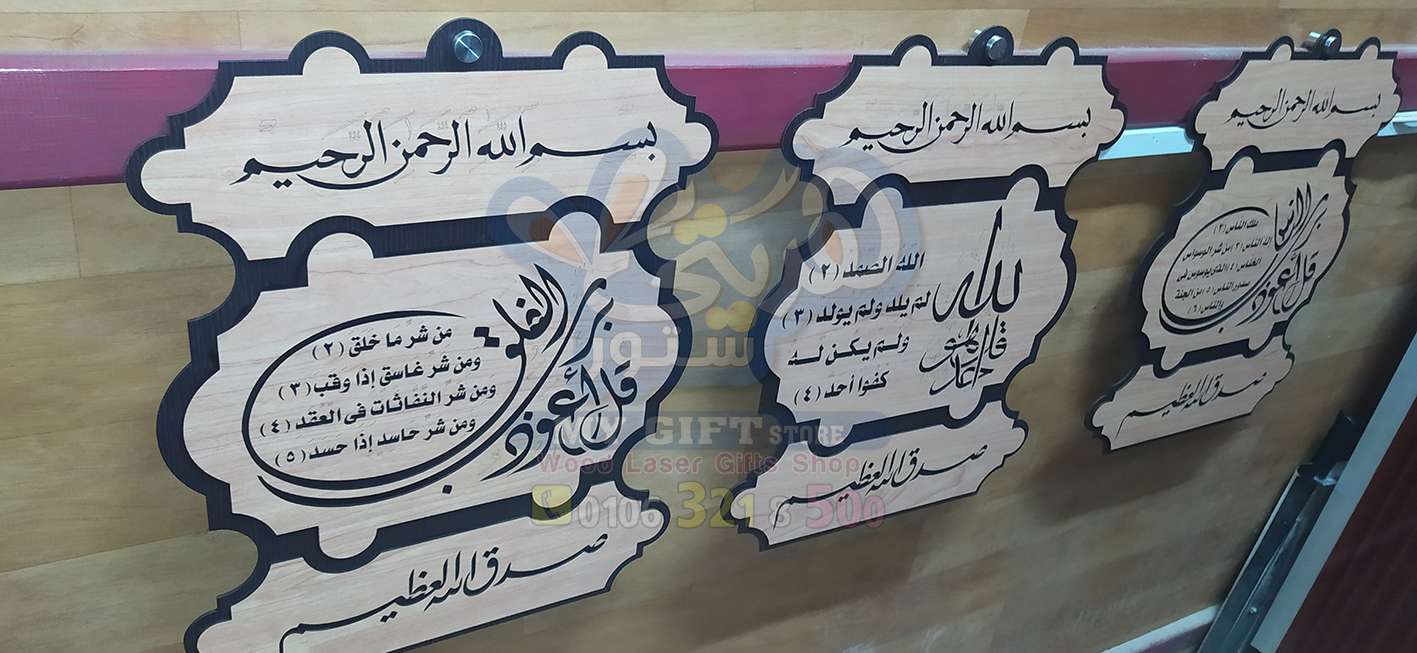 بسم الله الرحمن الرحيم
قل أعوذ برب الفلق
من شر ما خلق (٢)
ومن شر غاسق إذا وقب (٣)
ومن شر النفاثات فى العقد (٤)
ومن شر حاسد إذا حسد (٥)
صدق الله العظيم
بسم الله الرحمن الرحيم
قل هو الله أحد
الله الصمد (٢)
لم يلد ولم يولد (٣)
ولم يكن له
كفوا أحد (٤)
صدق الله العظيم
بسم الله الرحمن الرحيم
قل أعوذ برب الناس
ملك الناس (٢)
إله الناس (٣) من شر الوسواس
الخناس (٤) الذى يوسوس فى
صدور الناس (٥) من الجنة
والناس (٦)
صدق الله العظيم
هديتي
ستور
MY GIFT STORE
Wood Laser Gifts Shop
0106 321 8 500